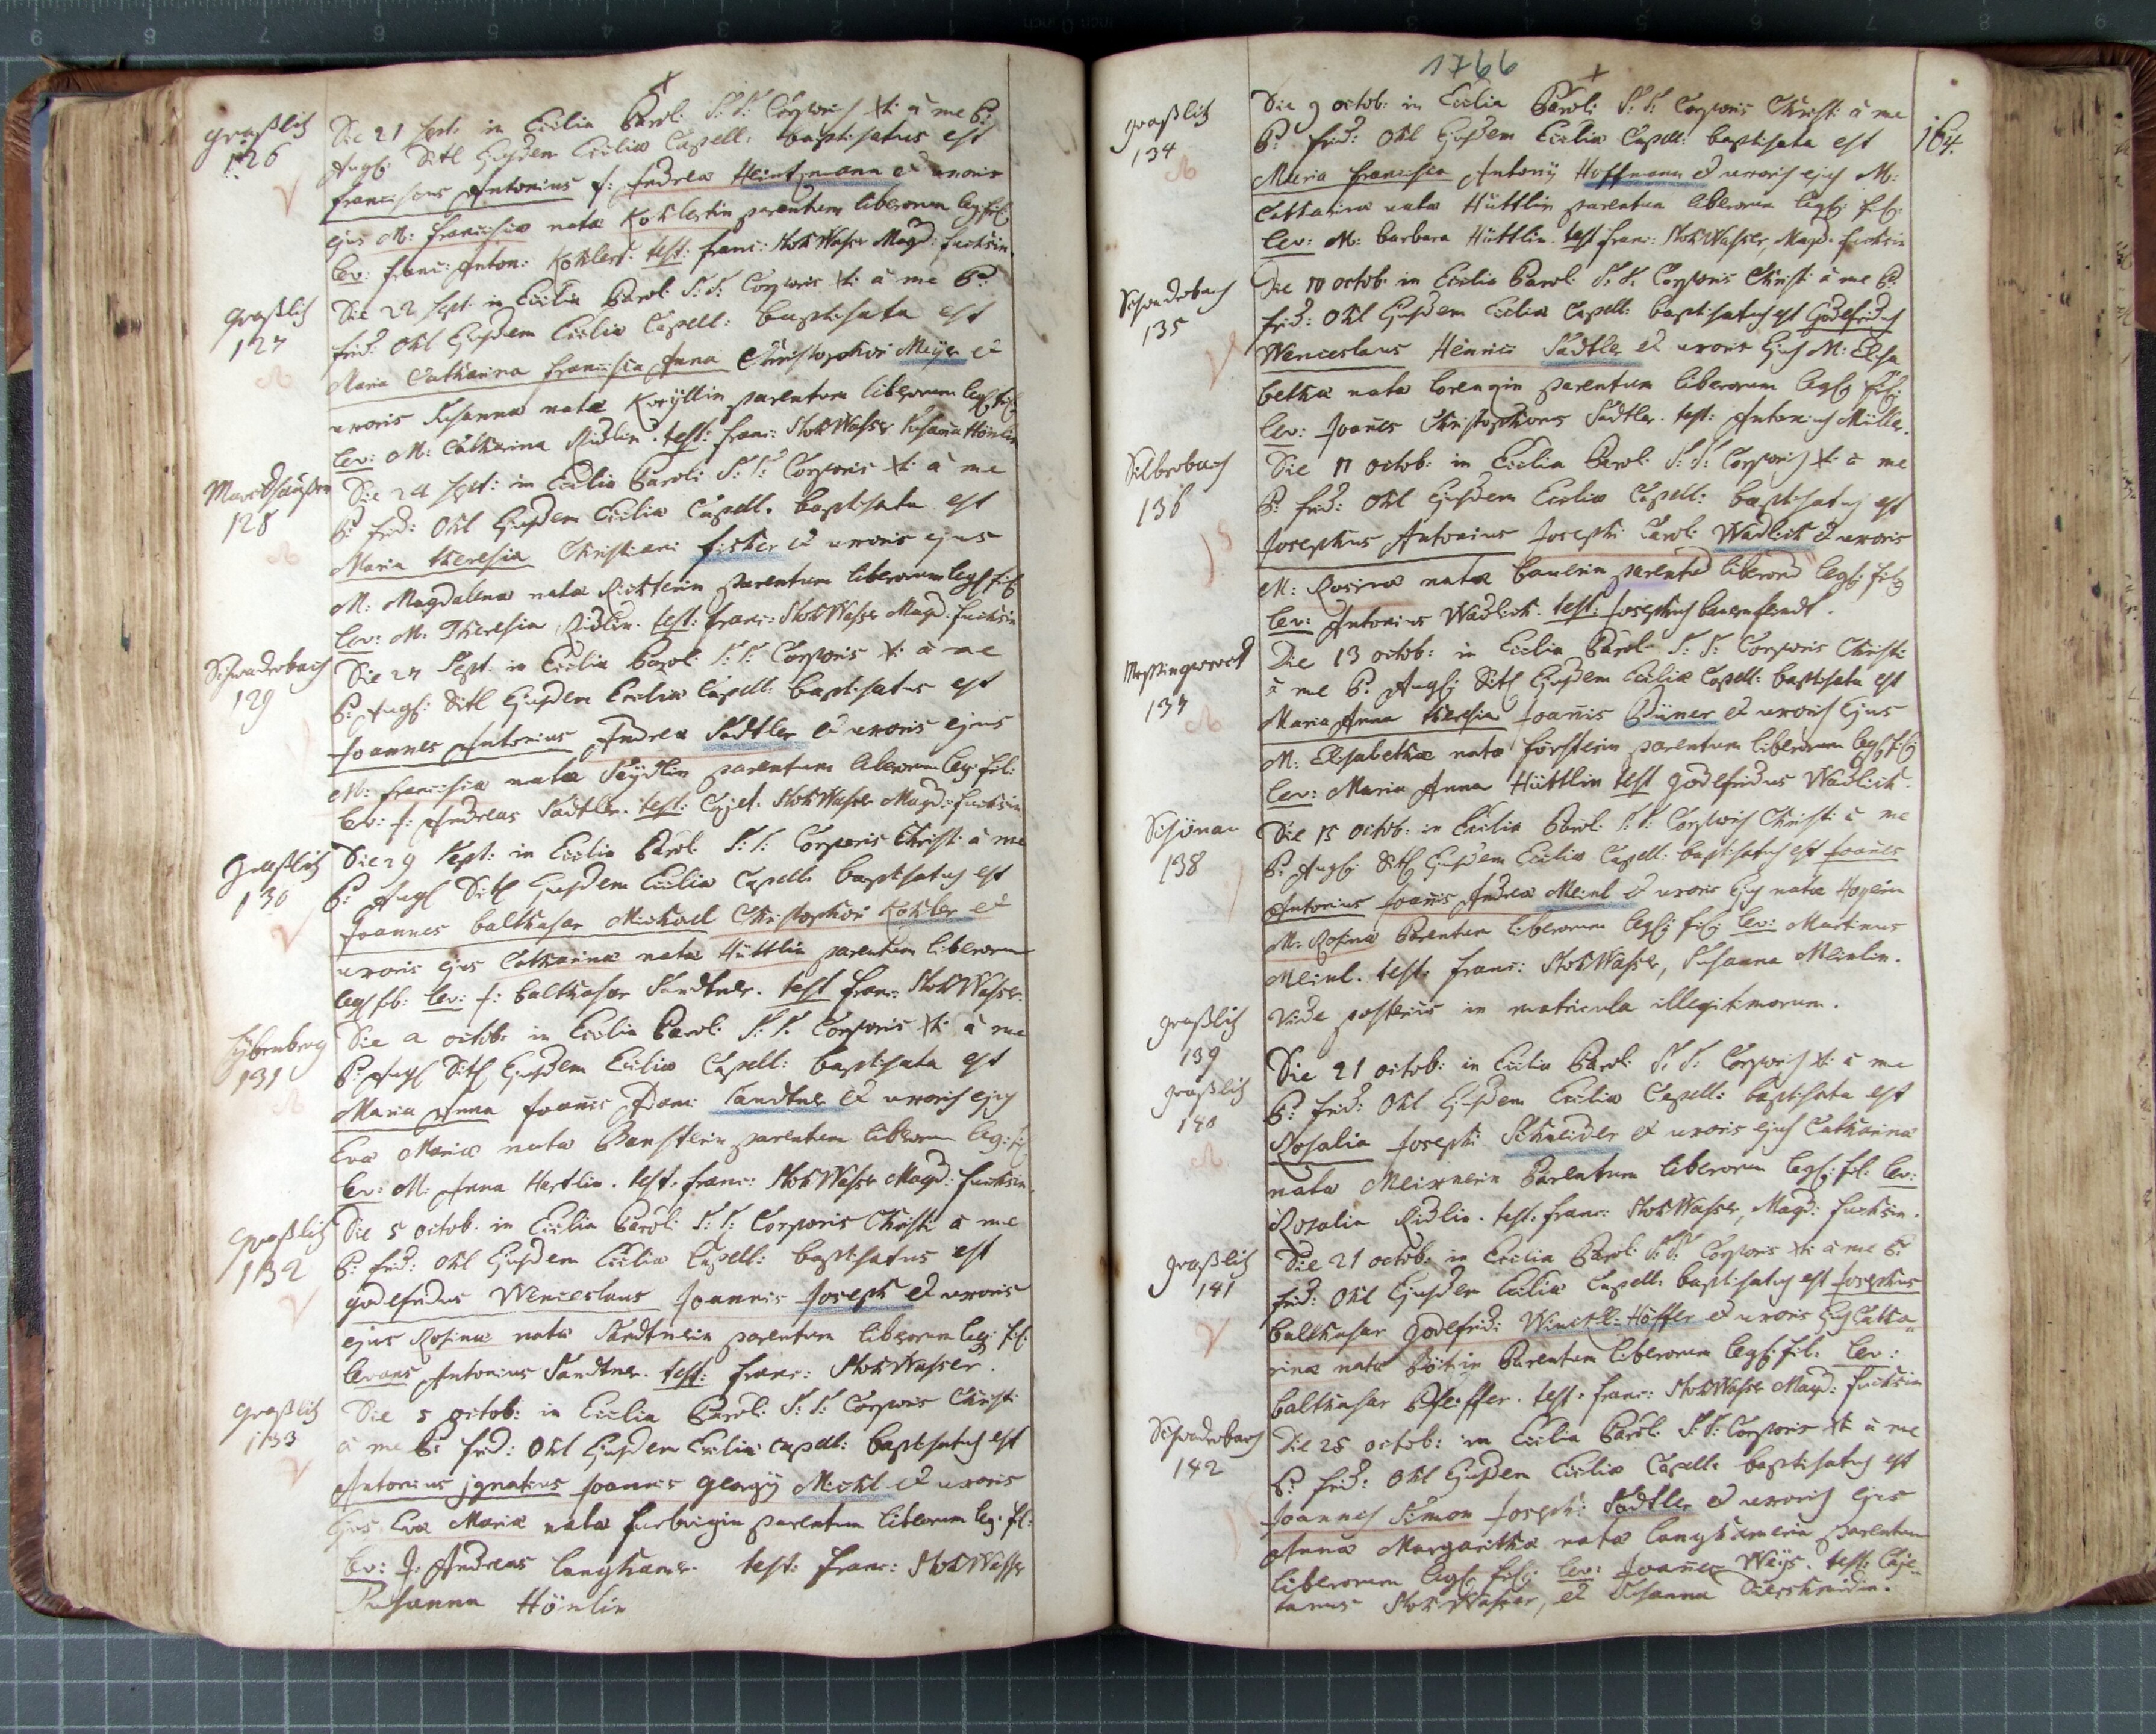 graßlitz
126
Die 21 Sept: in Ecclia Paroli S: S: Corporis Xti à me P:
Augs: Sitl Ejusdem Eccliæ Capell: baptisatus est
franciscus Antonius f: Andreæ Heintzmann et uxoris
ejus M: franciscæ natæ Kohlertin parentum liberorum leg: fil:
lev: franc: Anton: Kohlert: test: franc: StokWasser Magd: fuchsin.
graßlitz
127
Die 22 Sept: in Ecclia Paroli S: S: Corporis Xti à me P:
frid: Ohl Ejusdem Eccliæ Capell: baptisata est
Maria Catharina francisca Anna Christophori Meyer et
uxoris Susannæ natæ parentum liberorum leg: fil:
lev: M: Catharina Ridlin. test: franc: StokWasser Susanna Hönlin
128
Die 24 Sept: in Ecclia Paroli S: S: Corporis Xti à me
P: frid: Ohl Ejusdem Eccliæ Capell: baptisata est
Maria theresia Christiani fischer et uxoris ejus
M: Magdalenæ natæ Richterin parentum liberorum leg: fil:
lev: M: Theresia Ridlin. test: franc: StokWasser Magd: fuchsin
Schwaderbach
129
Die 27 Sept: in Ecclia Paroli S: S: Corporis Xti à me
P: Augs: Sitl Ejusdem Eccliæ Capell: baptisatus est
Joannes Antonius Andreæ Sadtler et uxoris ejus
M: franciscæ natæ Seydlin parentum liberorum leg: fil:
lev: f: Andreas Sadtler. test: Cajet: StokWasser Magd: fuchsin
Graßlitz
130
Die 29 Sept: in Ecclia Paroli S: S: Corporis Christi à me
P: Augs: Sitl Ejusdem Eccliæ Capell: baptisatus est
Joannes balthasar Michael Christophori Köhler et
uxoris ejus Catharinæ natæ Hüttlin parentum liberorum
leg: fil: lev: f: balthasar Sandtner. test franc: StokWasser.
131
Die 2 octob: in Ecclia Paroli S: S: Corporis Xti à me
P: Augs: Sitl Ejusdem Eccliæ Capell: baptisata est
Maria Anna Joañis franc: Sandtner et uxoris ejus
Evæ Mariæ natæ parentum liberorum leg: fil:
lev: M: Anna Hartlin. test: franc: StokWasser Magd: fuchsin.
graßlitz
132
Die 5 octob: in Ecclia Paroli S: S: Corporis Christi à me
P: frid: Ohl Ejusdem Eccliæ Capell: baptisatus est
godefridus Wenceslaus Joannis Joseph et uxoris
ejus Rosinæ natæ Sandtnerin parentum liberorum leg: fil:
levans Antonius Sandtner. test: franc: StokWasser.
graßlitz
133
Die 5 octob: in Ecclia Paroli S: S: Corporis Christi
à me P: frid: Ohl Ejusdem Eccliæ Capell: baptisatus est
Antonius ignatius Joannis georgij Michl et uxoris
Ejus Evæ Mariæ natæ parentum liberorum leg: fil:
lev: J: Andreas Langhamer. test: franc: StokWasser
Susanna Hönlin
1766
164.
graßlitz
134
Die 9 octob: in Ecclia Paroli S: S: Corporis Christi à me
P: frid: Ohl Ejusdem Eccliæ Capell: baptisata est
Maria francisca Antonij Hoffmann et uxoris ejus M:
Catharinæ natæ Hüttlin parentum liberorum legs: fil:
lev: M: barbara Hüttlin. test franc: StokWasser, Magd: fuchsin
Schwaderbach
135
Die 10 octob: in Ecclia Paroli S: S: Corporis Christi à me P:
frid: Ohl Ejusdem Eccliæ Capell: baptisatus est Godefridus
Wenceslaus Henrici Sadtler et uxoris Ejus M: Elisa
bethæ natæ Lorenzin parentum liberorum legs: fil:
lev: Joañes Christophorus Sadtler. test: Antonius Müller.
Silberbach
136
Die 11 octob: in Ecclia Paroli S: S: Corporis Xti à me
P: frid: Ohl Ejusdem Eccliæ Capell: baptisatus est
Josephus Antonius Josephi Caroli Wadlich et uxoris
M: Rosinæ natæ bauerin parentum liberorum legs: fil:
lev: Antonius Wadlich. test: Josephus bauernfeindt.
Messingwerck
137
Die 13 octob: in Ecclia Paroli S: S: Corporis Christi
à me P: Augs: Sitl Ejusdem Eccliæ Capell: baptisata est
Maria Anna theresia Joañis et uxoris Ejus
M: Elisabethæ natæ försterin parentum liberorum legs: fil:
lev: Maria Anna Hüttlin test godefridus Wadlich.
Schönau
138
Die 15 octob: in Ecclia Paroli S: S: Corporis Christi à me
P: Augs: Sitl Ejusdem Eccliæ Capell: baptisatus est Joañes
Antonius Joañis Andreæ Meinl et uxoris Ejus natæ
M: Rosinæ Parentum liberorum legs: fil: lev: Martinus
Meinl. test: franc: StokWasser, Susanna Meinlin.
graßlitz
139
Vide posterius in matricula illegitimorum.
graßlitz
140
Die 21 octob: in Ecclia Paroli S: S: Corporis Xti à me
P: frid: Ohl Ejusdem Eccliæ Capell: baptisata est
Rosalia Josephi Schneider et uxoris ejus Catharinæ
natæ Meixnerin Parentum liberorum legs: fil: lev:
Rosalia Ridlin. test: franc: StokWasser, Magd: fuchsin.
graßlitz
141
Die 21 octob: in Ecclia Paroli S: S: Corporis Xti à me P:
frid: Ohl Ejusdem Eccliæ Capell: baptisatus est Josephus
balthasar godefridi et uxoris Ejus Catha
rinæ natæ Parentum liberorum legs: fil: lev:
balthasar Pfeiffer. test: franc: StokWasser Magd: fuchsin
Schwaderbach
142
Die 25 octob: in Ecclia Paroli S: S: Corporis Xti à me
P: frid: Ohl Ejusdem Eccliæ Capell: baptisatus est
Joannes Simon Josephi Sadtler et uxoris ejus
Annæ Margarithæ natæ langhamerin parentum
liberorum legs: fil: lev: Joañes Weijs. test: Caje
tanus StokWasser, et Susanna